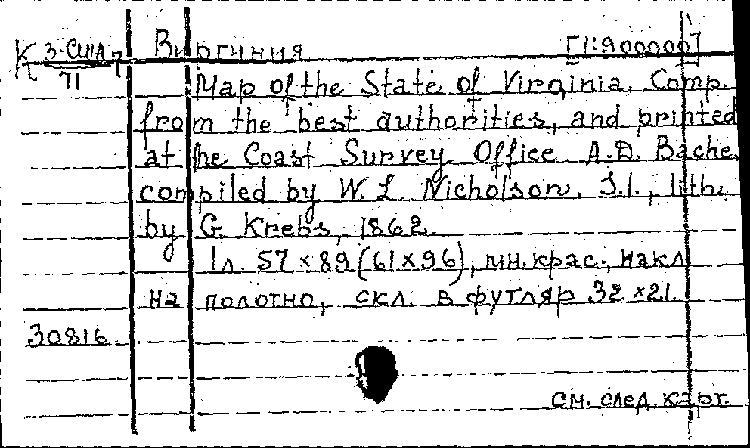 К 3-США/71 7 Виргиния [1:900000]
Map of the State of Virginia. Comp.
from the best authorities, and printed
at he Coast Survey Office A.D. Bache.
compiled by W. L. Nicholson. S.l., lith.
by G. Krebs, 1862.
1л. 57×89 (61×96), мн.крас., накл
на полотно, скл. в футляр 32×21.
30816.
см. след. карт.